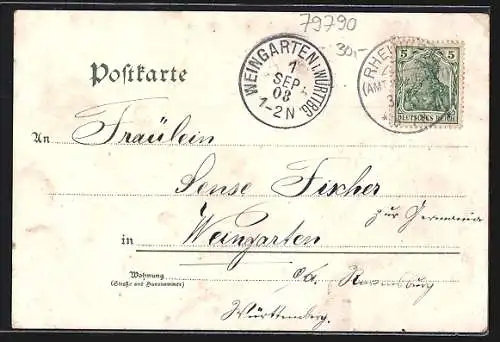 79790
30,-
WEINGARTEN i. WÜRTTBG
1
SEP.
03
1-2 N
RHEI
(AMT
5 5
DEUTSCHES REICH
Postkarte
An Fräulein
Sense Fischer
zur Germania
in Weingarten
Wohnung
(Straße und Hausnummer)
O/A. Ravensburg
Württemberg.